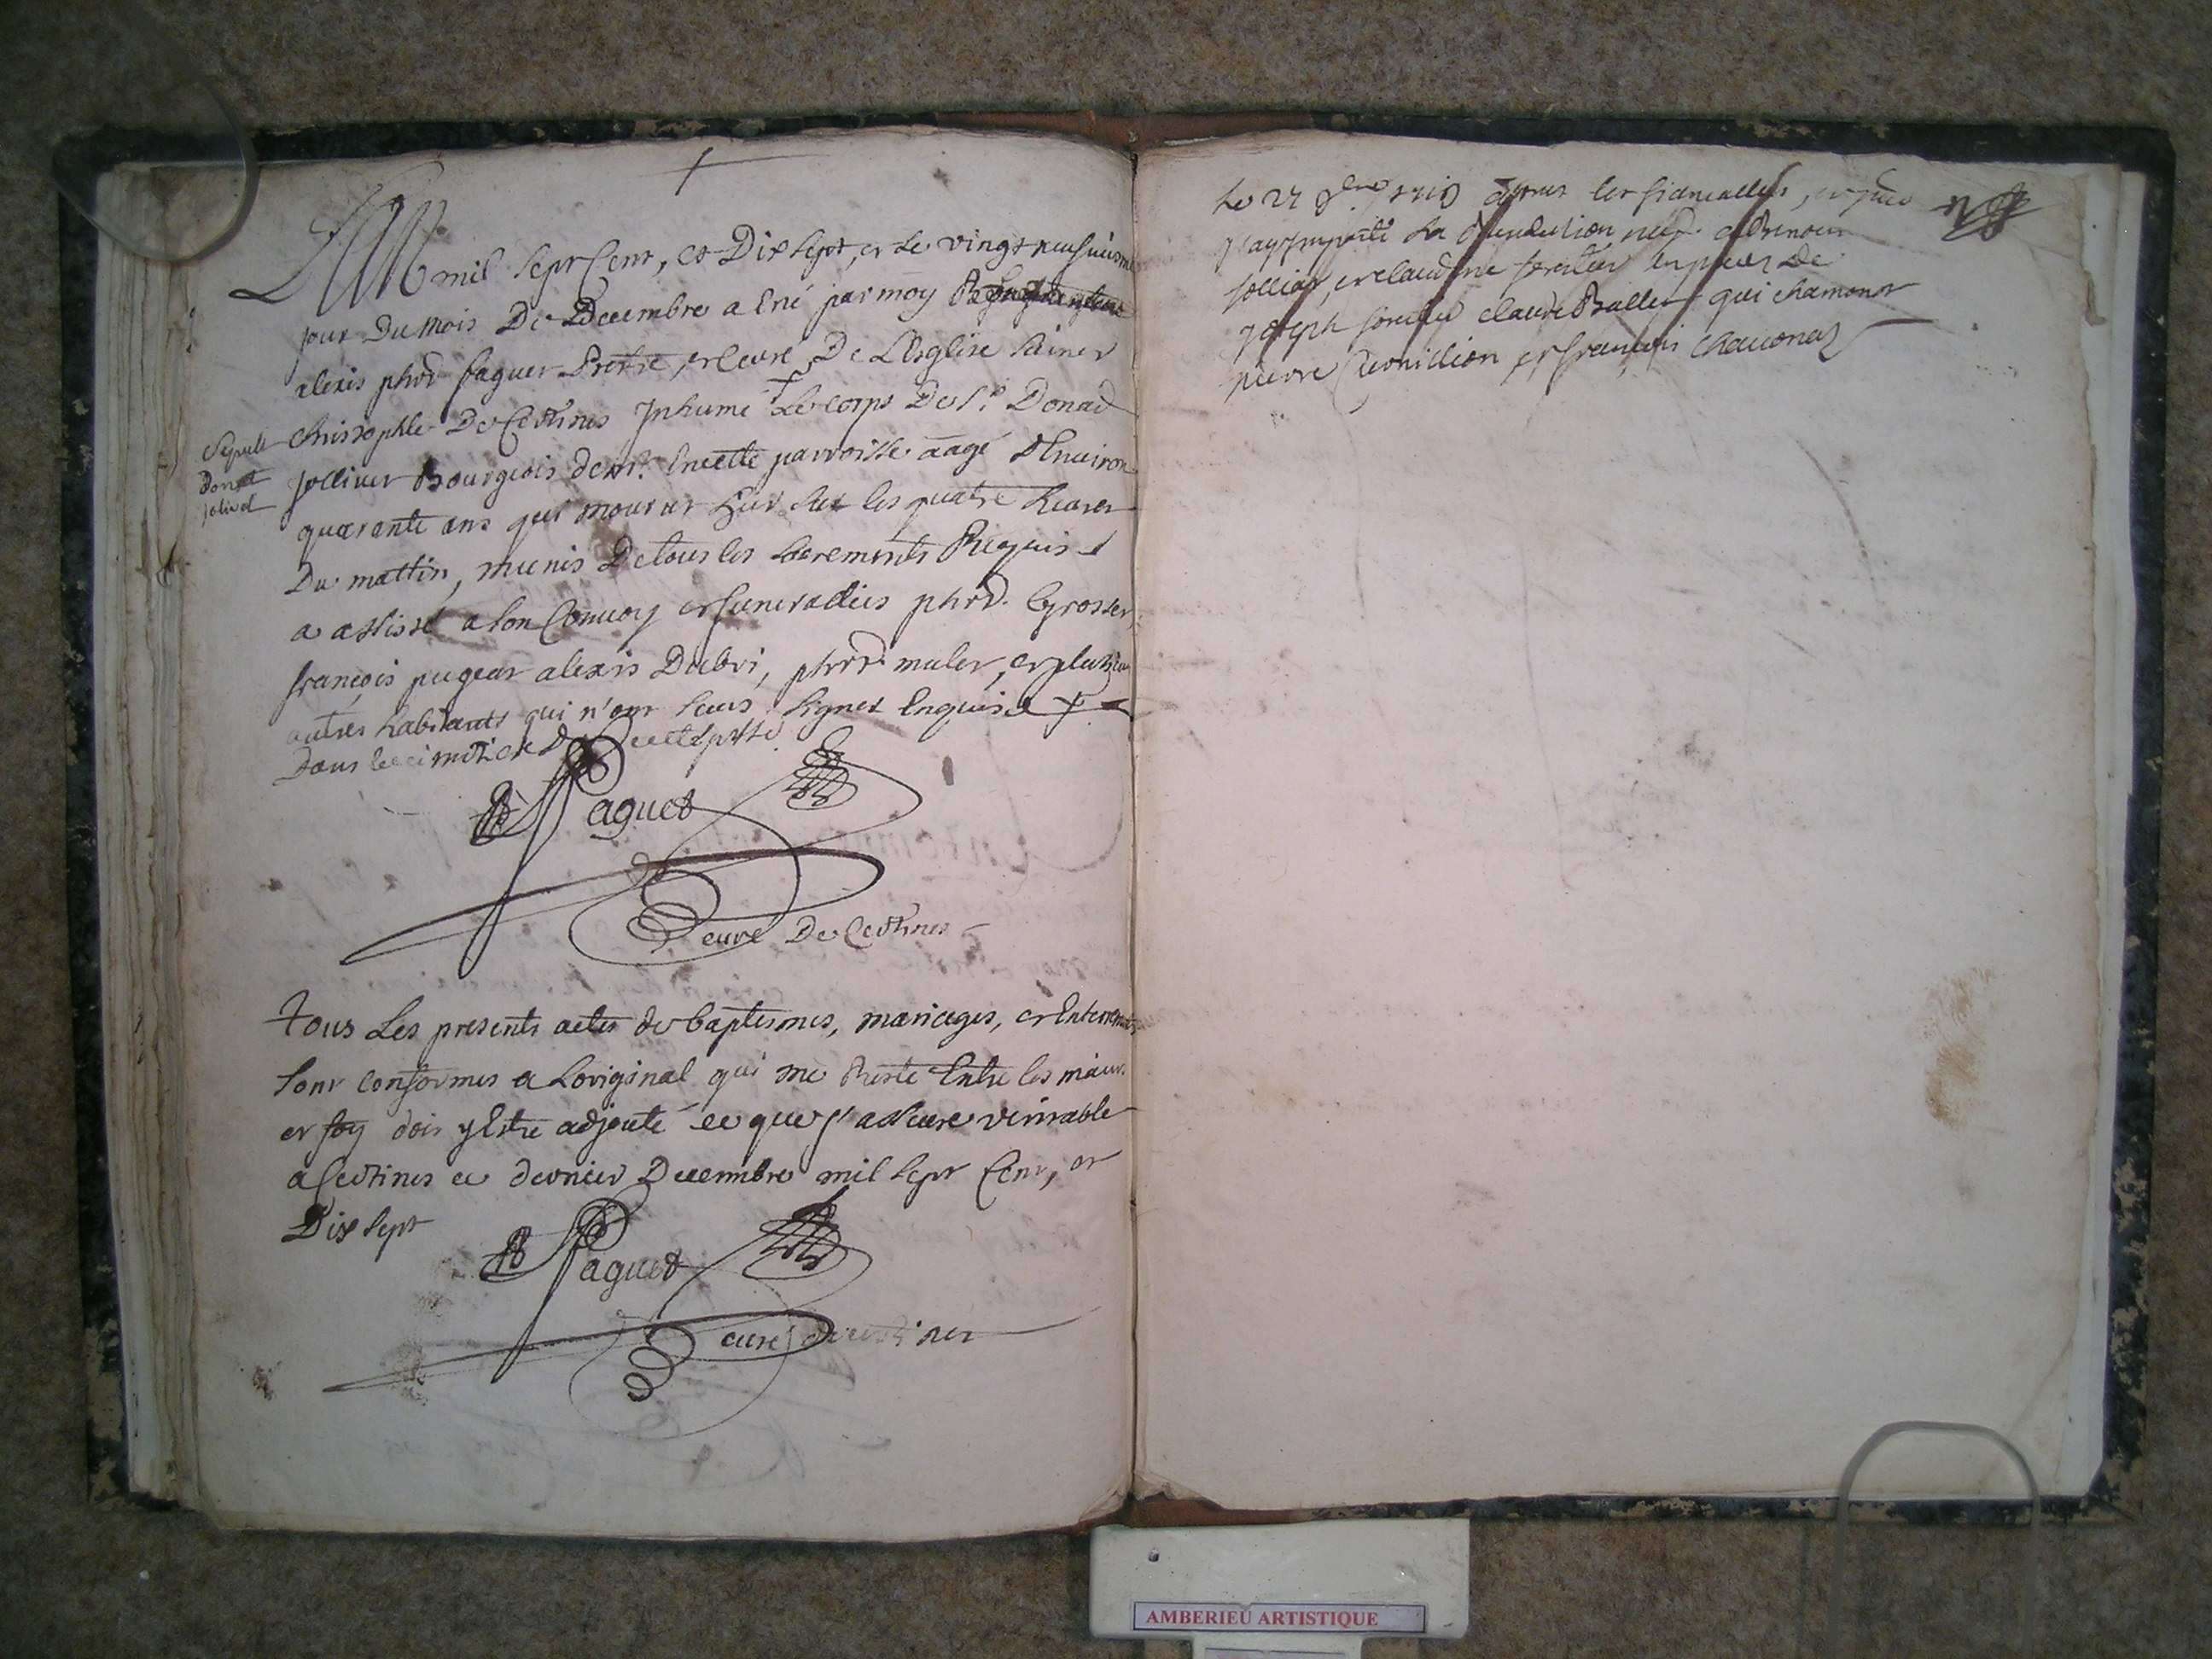 L'an mil sept Cent, et Dix sept, et le vingt neufuiesme
jour Du Mois De Decembre a Eté par moy
alexis phrd. Paguet Pretre, et Curé De L'Esglise Sainct
Christophle De Certines Inhumé Le corps De Sr. Donad
Sepult
Donat
Jolivet
Jollivet Bourgeois demt. En cette parroisse aagé D'Environ
quarante ans qui mourut hier sur les quatre heures
Du mattin, munis De tous les sacrements Requis
a assisté a son Convoy et funerailles phrd. Grosset,
françois pugeat alexis Dubri, phrd. mulet, et plusieurs
autres habitants qui n'ont sceus signer Enquis
Dans le cimetiere De cette psse
Paguet
curé De Certines
Tous Les presents actes de baptesmes, mariages, et Enterrements
sont conformes a L'original qui me Reste Entre les mains
et foy doit y Estre adjouté ce que j'asseure veritable
a Certines ce dernier Decembre mil sept Cent, et
Dix sept
Paguet
curé de certines
Le 27 apres les fiancailles,
j'ay imparti La Benediction
Jollias, et claudine
joseph claude Ballet qui
pierre et francois
AMBERIEU ARTISTIQUE